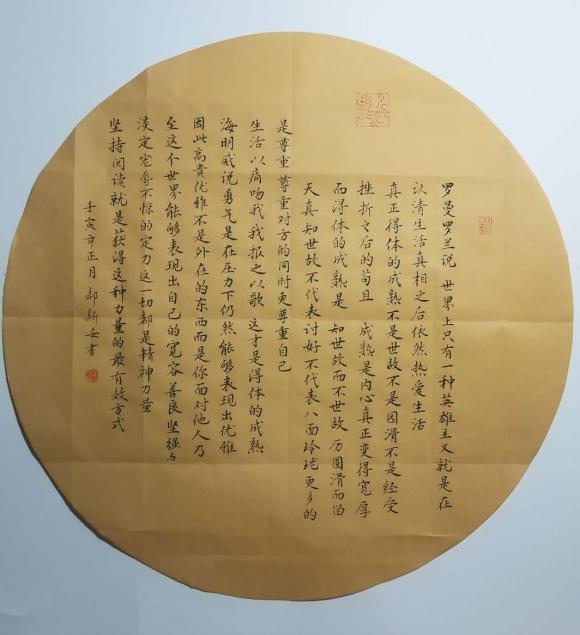 罗曼罗兰说 世界上只有一种英雄主义就是在
认清生活真相之后依然热爱生活
真正得体的成熟不是世故不是圆滑不是经受
挫折之后的苟且 成熟是内心真正变得宽厚
而得体的成熟是 知世故而不世故 历圆滑而留
天真知世故不代表讨好不代表八面玲珑更多的
是尊重尊重对方的同时更尊重自己
生活以痛吻我我报之以歌 这才是得体的成熟
海明威说勇气是在压力下仍然能够表现出优雅
因此高贵优雅不是外在的东西而是你面对他人乃
至这个世界能够表现出自己的宽容善良坚强与
淡定宠辱不惊的定力这一切都是精神力量
坚持阅读就是获得这种力量的最有效方式
壬寅年正月郝新安书